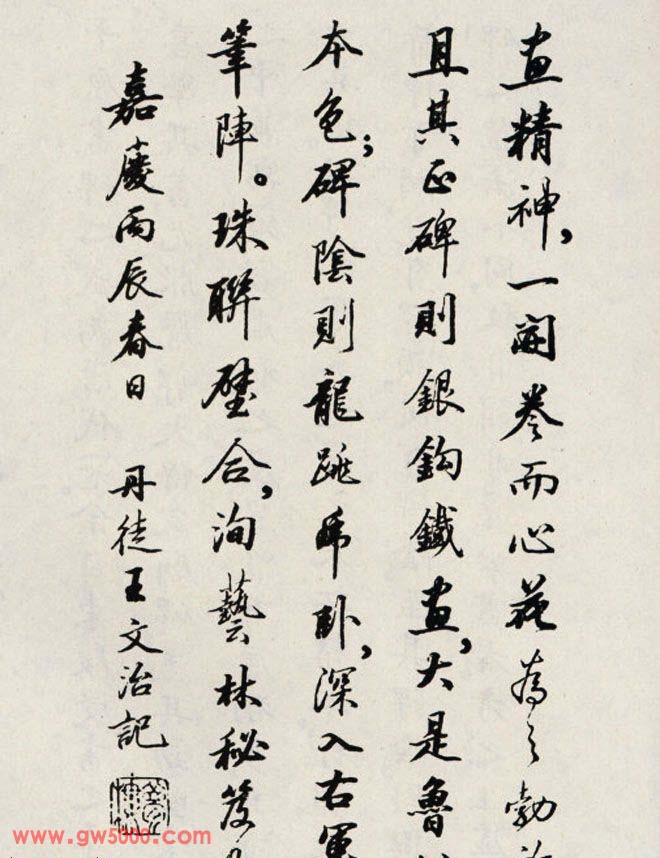 畫精神，一開卷而心花為之勃
且其正碑則銀鈎鐵畫，大是魯
本色；碑陰則龍跳乕卧，深入右軍
筆陣。珠聯璧合，洵藝林秘笈
嘉慶丙辰春日 丹徒王文治記
www.gw5000.com